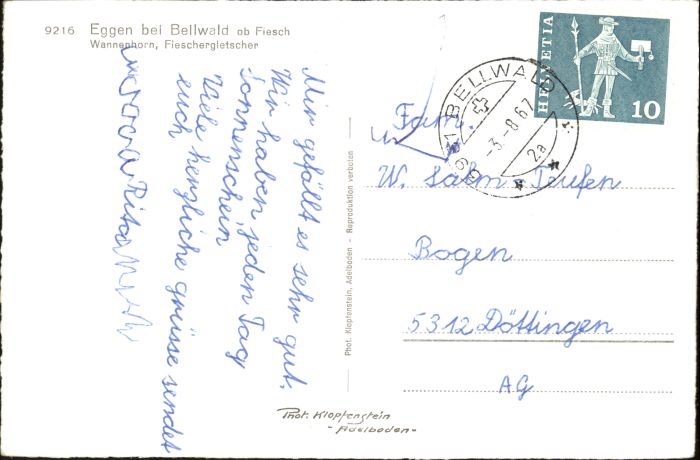 9216 Eggen bei Bellwald ob Fiesch
Wannenhorn, Fieschergletscher
Mir gefällt es sehr gut.
Wir haben jeden Tag
Sonnenschein
Viele herzliche grüsse sendet
euch
Rita
Phot. Klopfenstein, Adelboden - Reproduktion verboten
Phot. Klopfenstein
- Adelboden -
HELVETIA
10
BELLWALD
-3.-8.67
2a
Fam.
W. Salm - Teufen
Bogen
5312 Döttingen
AG